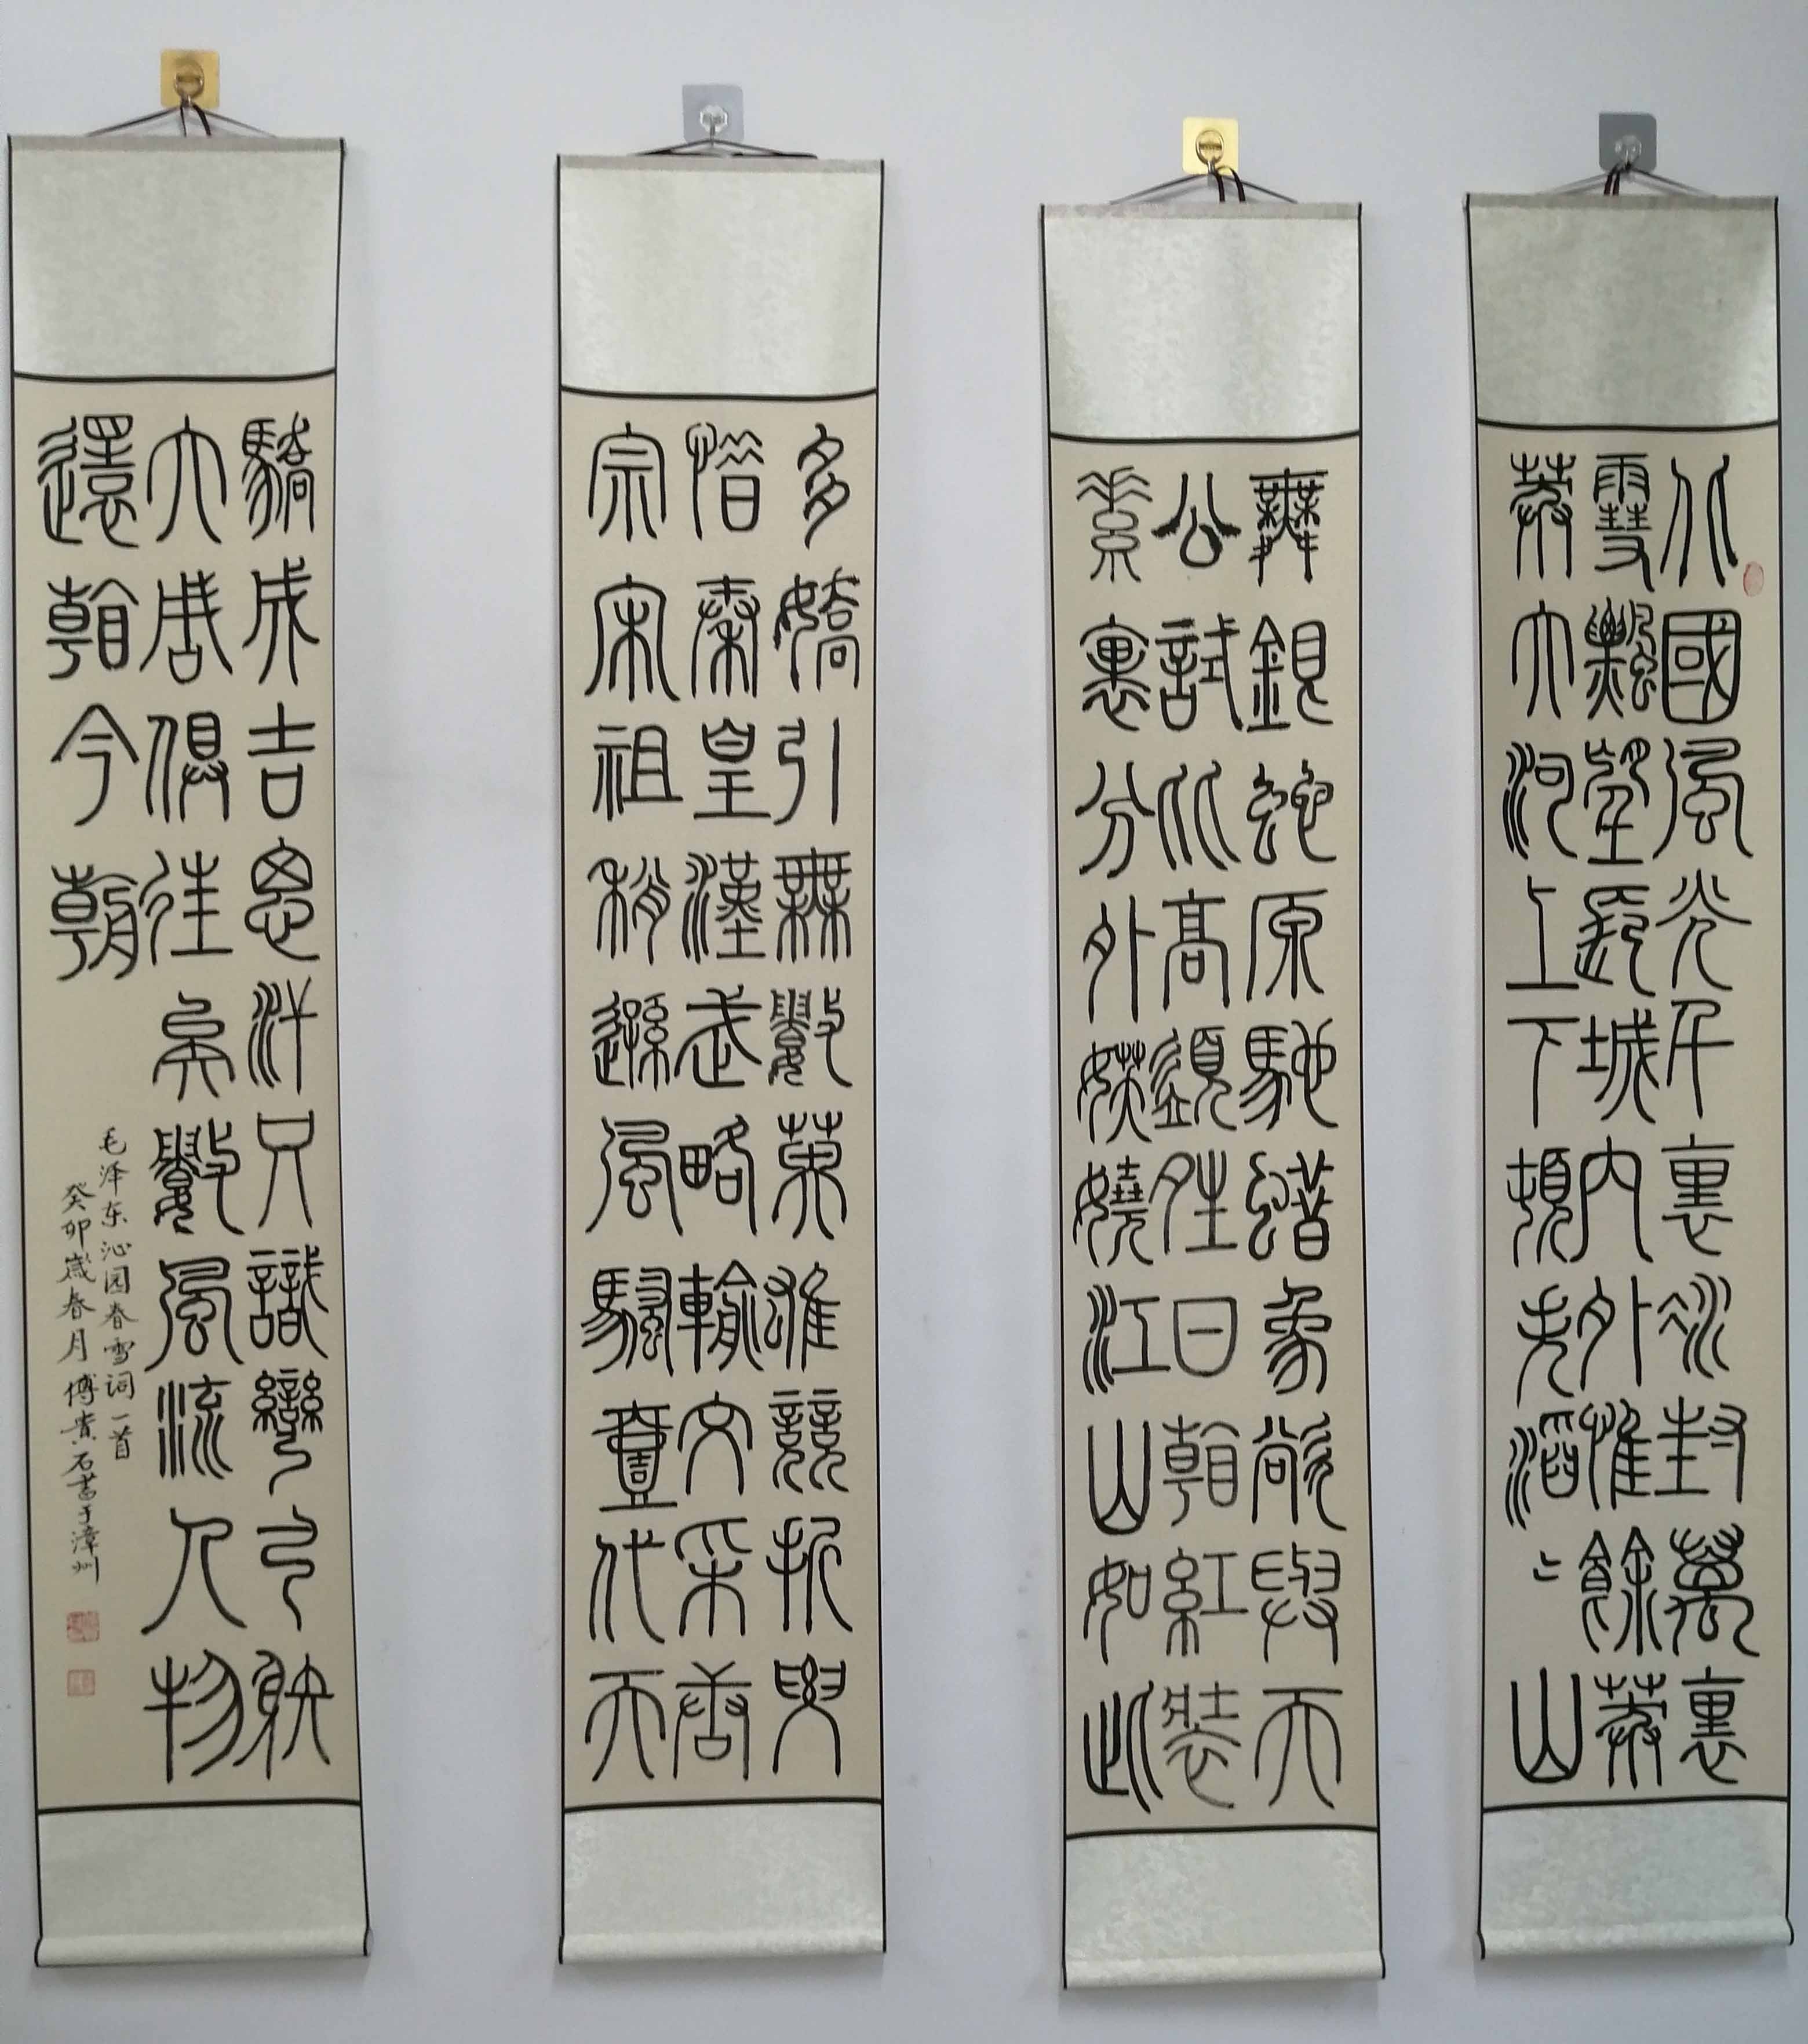 北國風光千裏冰封萬裏
雪飄望長城內外惟餘莽
莽大河上下頓失滔〻山
舞銀蛇原馳蠟象欲與天
公試比高須晴日看紅裝
素裹分外妖嬈江山如此
多嬌引無數英雄競折腰
惜秦皇漢武略輸文采唐
宗宋祖稍遜風騷壹代天
驕成吉思汗只識彎弓射
大雕俱往矣數風流人物
還看今朝
毛泽东沁园春雪词一首
癸卯嵗春月傅石書于漳州